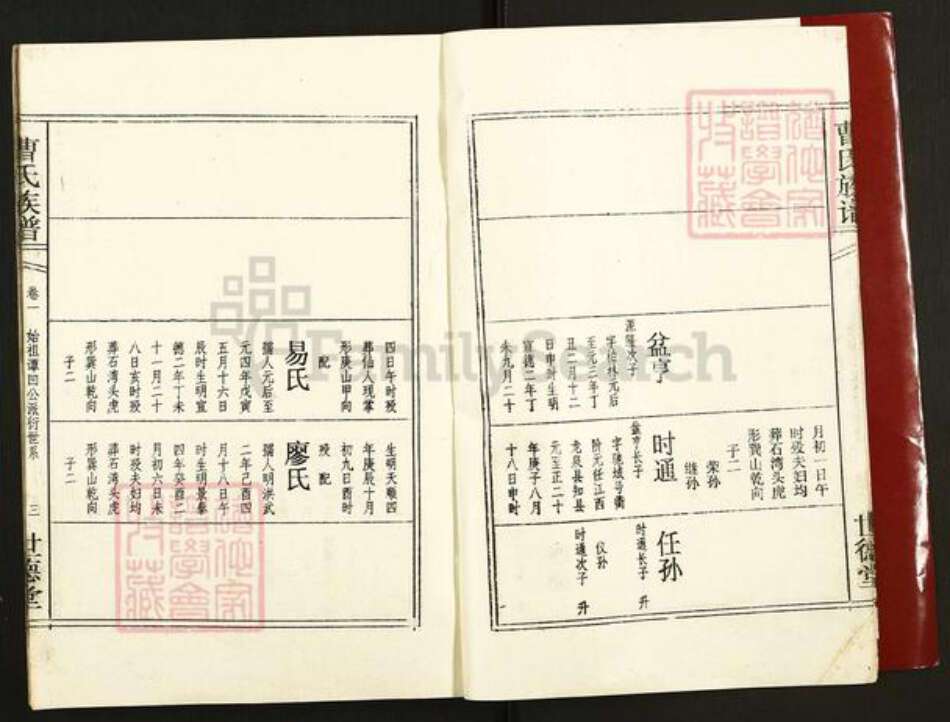 曹氏族谱
月初一日午
时殁夫妇均
葬石湾头虎
形巽山乾向
子二
荣孙
继孙
盆亨
派隆次子
字伯林元后
至元三年丁
丑二月十二
日申时生明
宣德二年丁
未九月二十
时通
盆亨长子
字陵坡号衢
阶元任江西
龙泉县知县
元至正二十
年庚子八月
十八日申时
任孙
时通长子 升
仪孙
时通次子 升
世德堂
四日午时殁
葬仙人现掌
形庚山甲向
配
易氏
孺人元后至
元四年戊寅
五月十六日
辰时生明宣
德二年丁未
十一月二十
八日亥时殁
葬石湾头虎
形巽山乾向
子二
生明天顺四
年庚辰十月
初九日酉时
殁 配
廖氏
孺人明洪武
二年己酉四
月十八日午
时生明景泰
四年癸酉二
月初六日未
时殁夫妇均
葬石湾头虎
形巽山乾向
子二
曹氏族谱
卷一 始祖谭凹公派衍世系
三
世德堂
FamilySearch